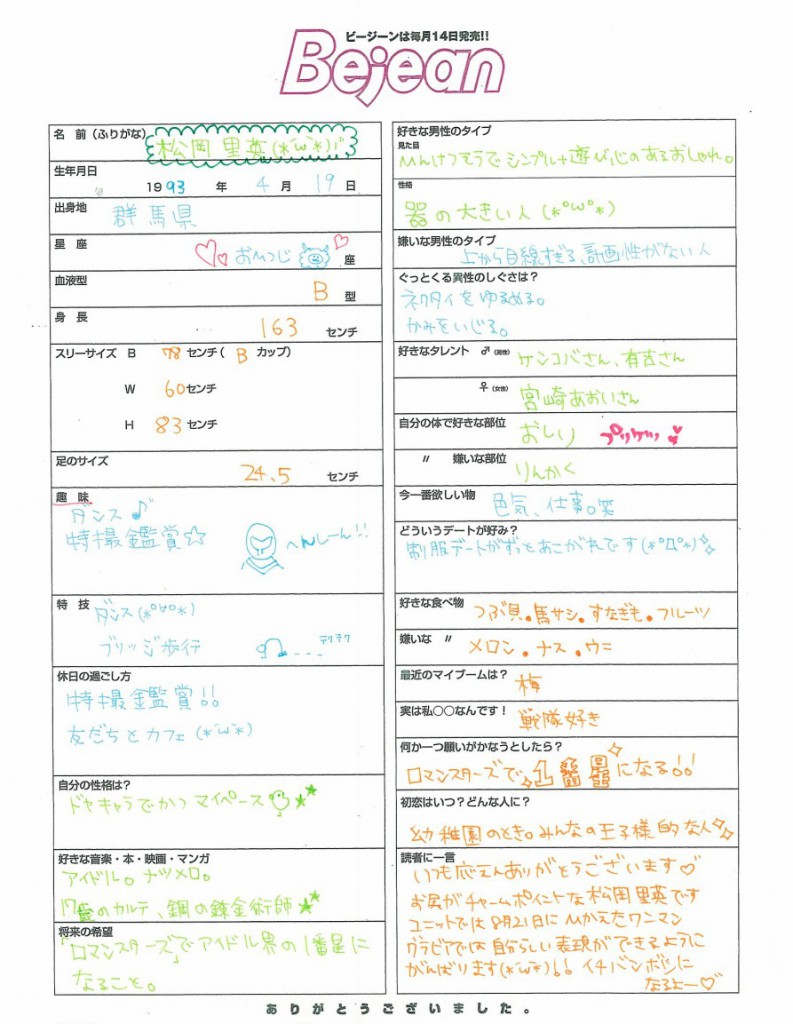 ビージーンは毎月14日発売!!
Bejean
名 前 (ふりがな) 松岡 里英(*´ω`*)ﾉ"
生年月日
1993 年 4 月 19 日
出身地 群馬県
星 座 おひつじ 座
血液型 B 型
身 長 163 センチ
スリーサイズ B 78 センチ( B カップ)
W 60 センチ
H 83 センチ
足のサイズ
24.5 センチ
趣 味
ダンス♪
特撮鑑賞☆
へんしーん!!
特 技 ダンス(*°∀°*)
ブリッジ歩行 テクテク
休日の過ごし方
特撮鑑賞!!
友だちとカフェ(*´ω`*)
自分の性格は?
ドヤキャラでかつマイペース
好きな音楽・本・映画・マンガ
アイドル。ナツメロ。
17歳のカルテ、鋼の錬金術師★
将来の希望
「ロマンスターズ」でアイドル界の1番星に
なること。
好きな男性のタイプ
見た目
ひんけつそうでシンプル+遊び心のあるおしゃれ。
性格
器の大きい人(*°ω°*)
嫌いな男性のタイプ
上から目線すぎる、計画性がない人
ぐっとくる異性のしぐさは?
ネクタイをゆるめる。
かみをいじる。
好きなタレント ♂(男性) ケンコバさん、有吉さん
♀(女性) 宮崎あおいさん
自分の体で好きな部位 おしり プリケツッ
〃 嫌いな部位 りんかく
今一番欲しい物 色気、仕事。笑
どういうデートが好み?
制服デートがずっとあこがれです(*°Д°*)
好きな食べ物 つぶ貝。馬サシ。すなぎも。フルーツ
嫌いな 〃 メロン。ナス。ウニ
最近のマイブームは? 梅
実は私○○なんです! 戦隊好き
何か一つ願いがかなうとしたら?
ロマンスターズで1番星になる!!
初恋はいつ?どんな人に?
幼稚園のとき。みんなの王子様的な人
読者に一言
いつも応えんありがとうございます♡
お尻がチャームポイントな松岡里英です
ユニットでは8月21日にひかえたワンマン
グラビアでは自分らしい表現ができるように
がんばります(*´ω`*)!! イチバンボシに
なるよー♡
ありがとうございました。